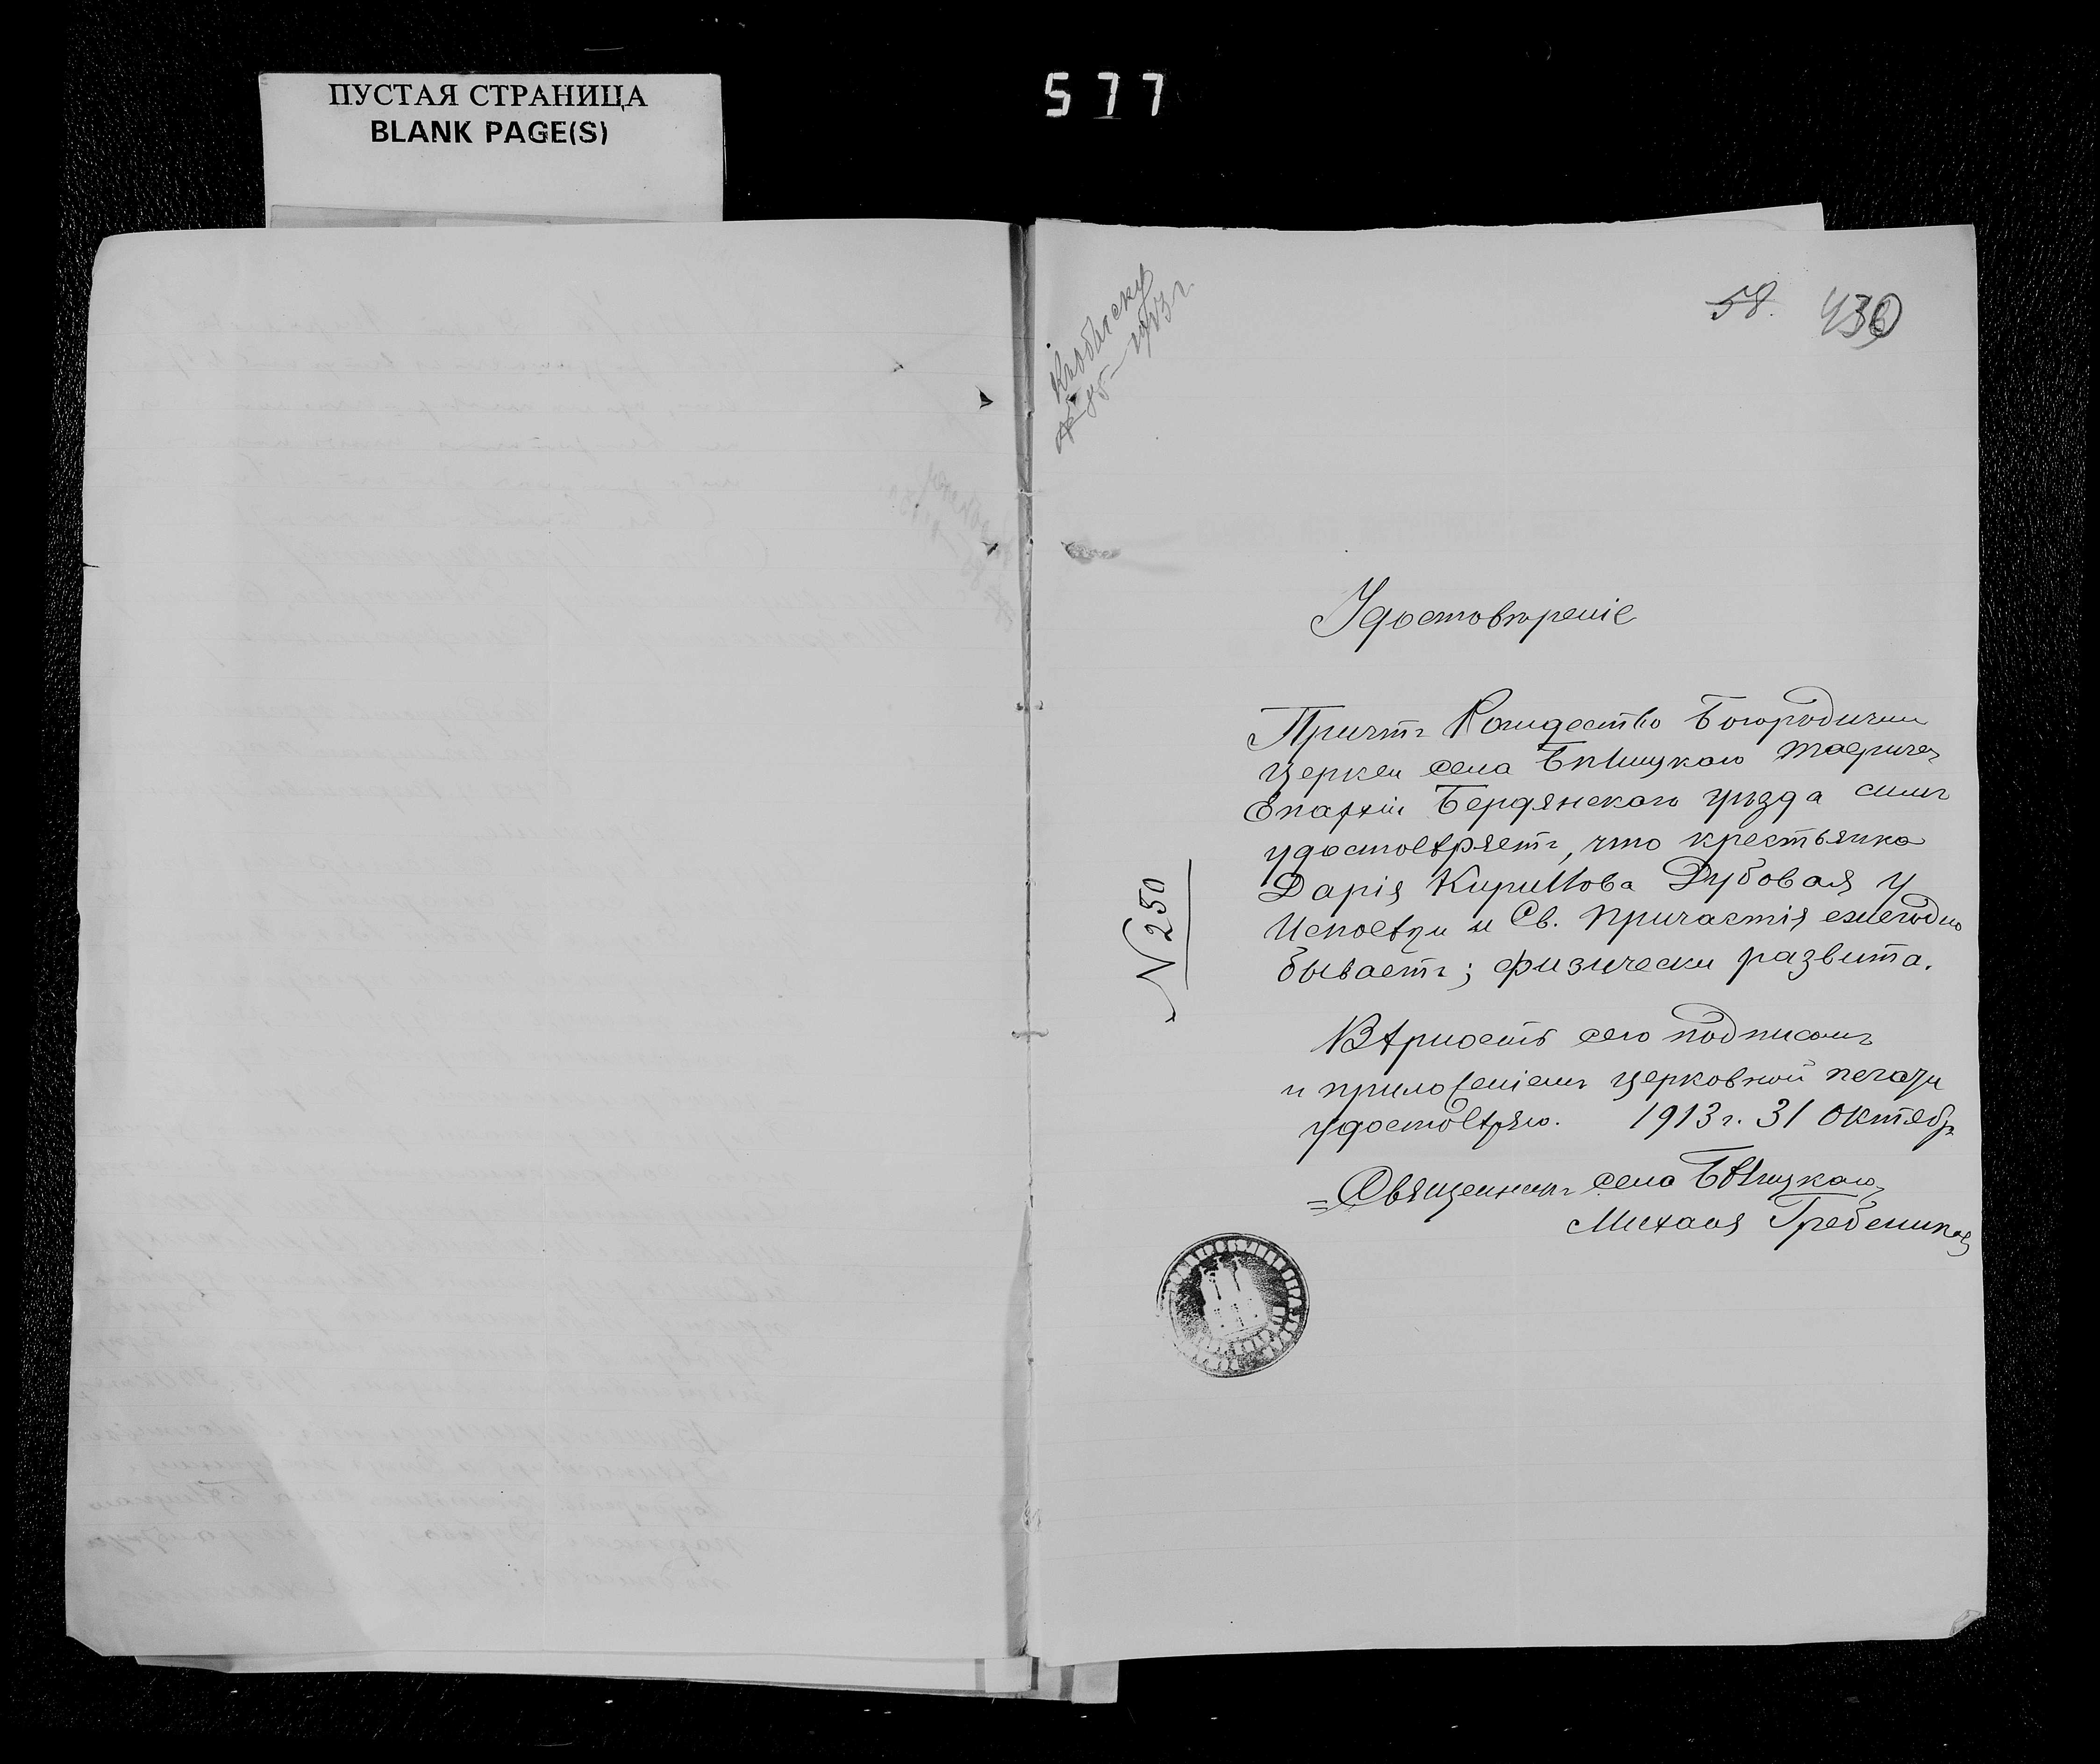 ПУСТАЯ СТРАНИЦА
BLANK PAGE(S)
577
58. 430
к обыску
№ 85 – 1913 г.
Удостовѣреніе
Причтъ Рождество Богородичн
церкви села Бѣлицкаго Таврич
Епархіи Бердянскаго уѣзда симъ
удостовѣряетъ, что крестьянка
Дарія Кириллова Дубовая у
Исповѣди и Св. Причастія ежегодно
бываетъ; физически развита.
№ 250
Вѣрность сего подписомъ
и приложеніемъ церковной печати
удостовѣряю. 1913 г. 31 Октябр
Священникъ села Бѣлицкаго
Михаилъ Гребенников